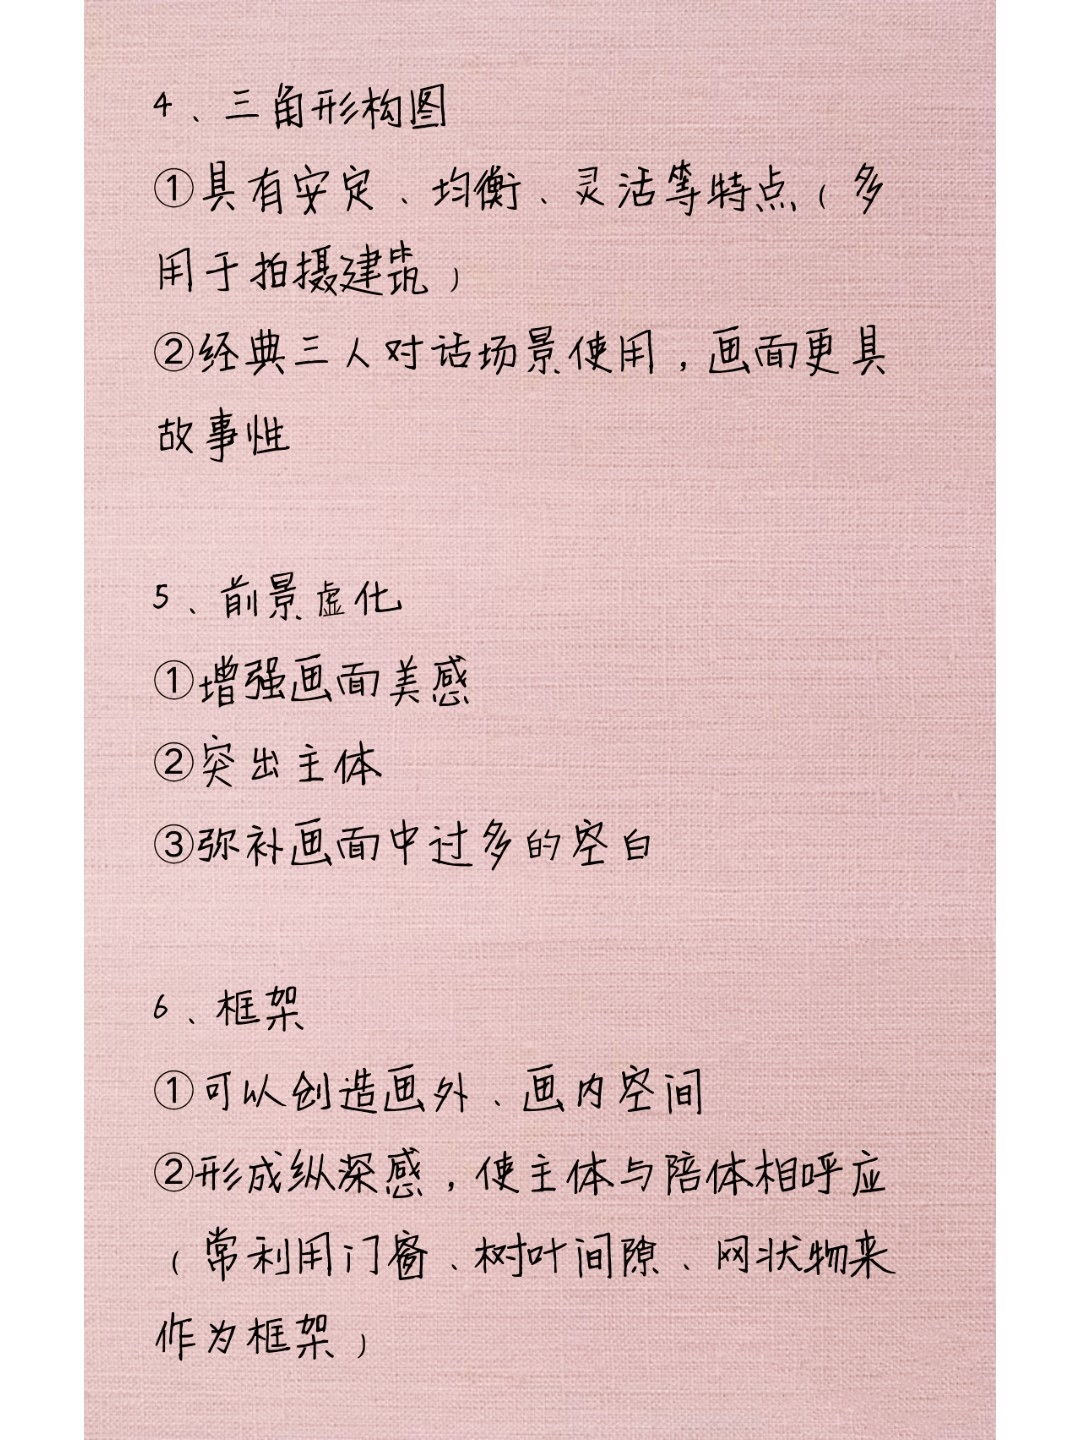 4、三角形构图
①具有安定、均衡、灵活等特点（多
用于拍摄建筑）
②经典三人对话场景使用，画面更具
故事性
5、前景虚化
①增强画面美感
②突出主体
③弥补画面中过多的空白
6、框架
①可以创造画外、画内空间
②形成纵深感，使主体与陪体相呼应
（常利用门窗、树叶间隙、网状物来
作为框架）